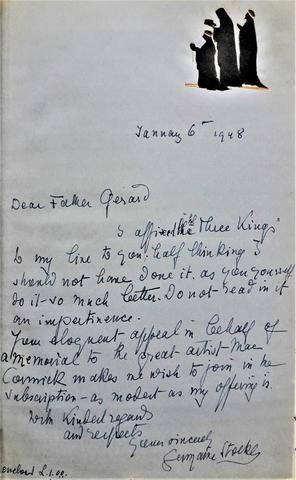 January 6th 1948
Dear Father Gerard
I affixed the "Three Kings"
to my line to you: half thinking I
should not have done it, as you yourself
do it so much better. Do not read in it
an impertinence.
Your eloquent appeal in behalf of
a memorial to the great artist Mac
Cormick makes me wish to join in the
subscription - as modest as my offering is.
With kindest regards
and respects
Yours sincerely
Germaine
enclosed £.1.00.